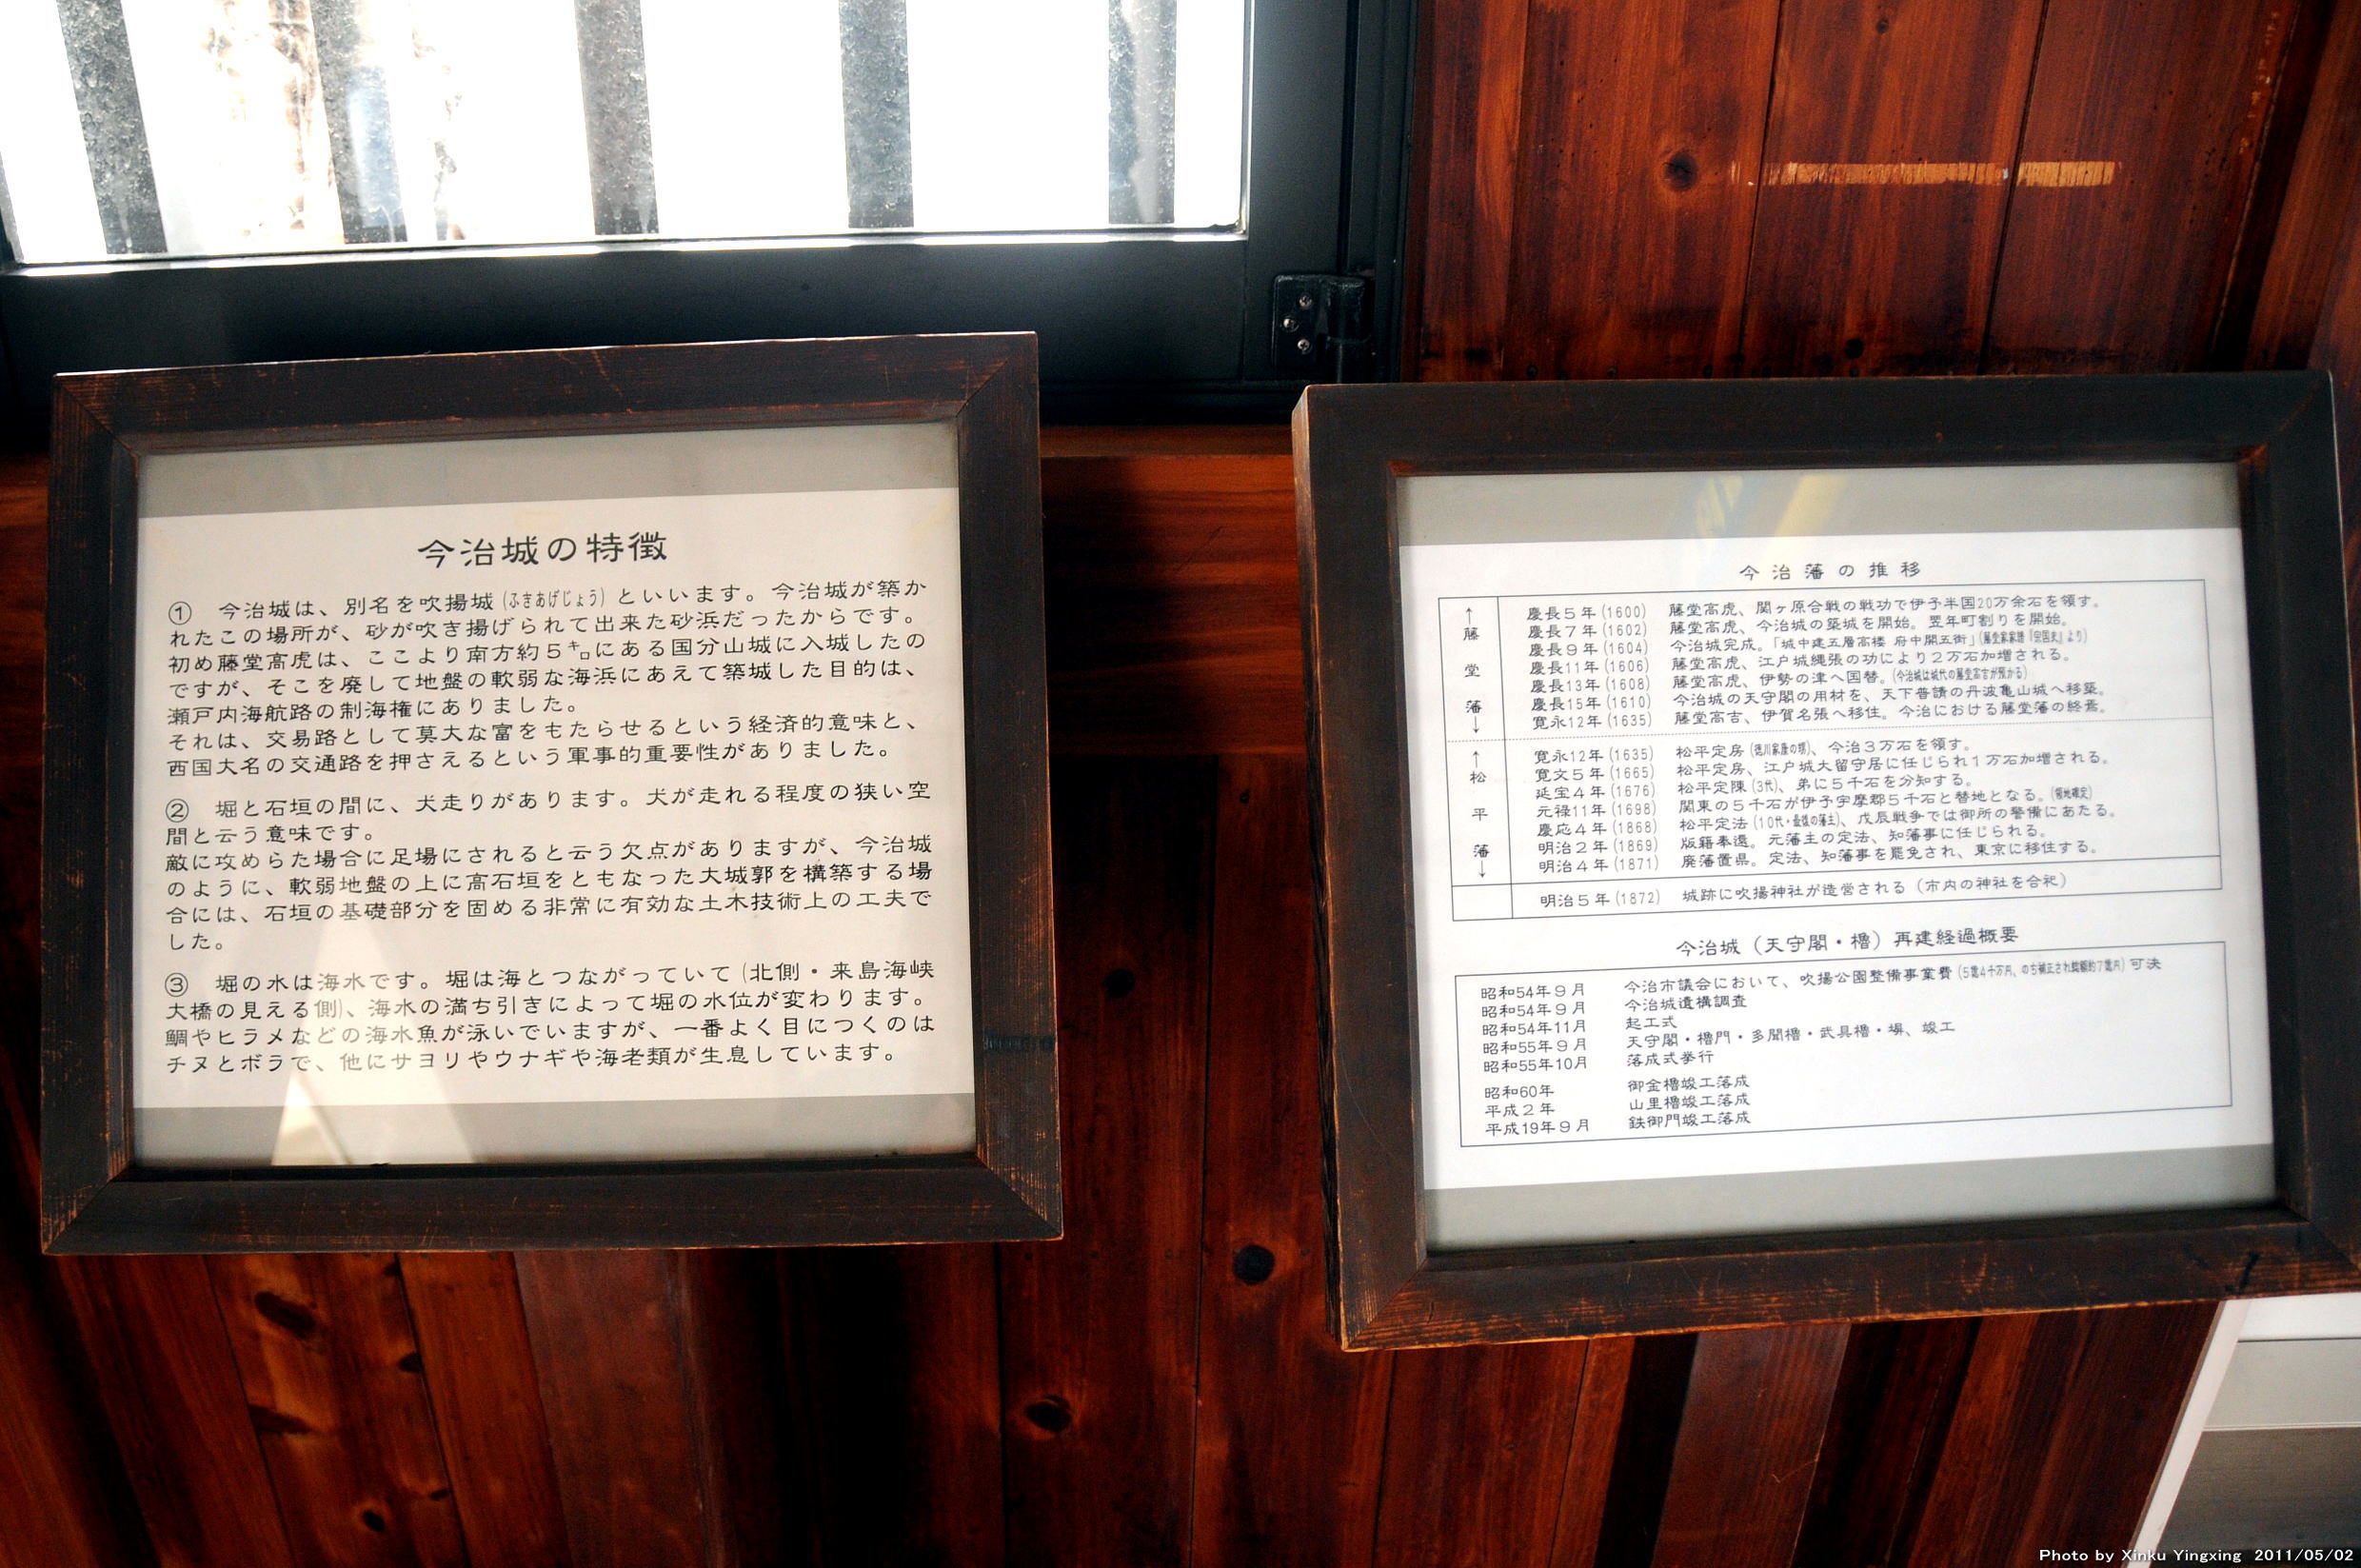 今治城の特徴
① 今治城は、別名を吹揚城(ふきあげじょう)といいます。今治城が築か
れたこの場所が、砂が吹き揚げられて出来た砂浜だったからです。
初め藤堂高虎は、ここより南方約5㌔にある国分山城に入城したの
ですが、そこを廃して地盤の軟弱な海浜にあえて築城した目的は、
瀬戸内海航路の制海権にありました。
それは、交易路として莫大な富をもたらせるという経済的意味と、
西国大名の交通路を押さえるという軍事的重要性がありました。
② 堀と石垣の間に、犬走りがあります。犬が走れる程度の狭い空
間と云う意味です。
敵に攻めらた場合に足場にされると云う欠点がありますが、今治城
のように、軟弱地盤の上に高石垣をともなった大城郭を構築する場
合には、石垣の基礎部分を固める非常に有効な土木技術上の工夫で
した。
③ 堀の水は海水です。堀は海とつながっていて(北側・来島海峡
大橋の見える側)、海水の満ち引きによって堀の水位が変わります。
鯛やヒラメなどの海水魚が泳いでいますが、一番よく目につくのは
チヌとボラで、他にサヨリやウナギや海老類が生息しています。
今治藩の推移
↑藤堂藩↓
慶長5年(1600) 藤堂高虎、関ヶ原合戦の戦功で伊予半国20万余石を領す。
慶長7年(1602) 藤堂高虎、今治城の築城を開始。翌年町割りを開始。
慶長9年(1604) 今治城完成。「城中建五層高楼 府中開五街」(藤堂家家譜『宗国史』より)
慶長11年(1606) 藤堂高虎、江戸城縄張の功により2万石加増される。
慶長13年(1608) 藤堂高虎、伊勢の津へ国替。(今治城は城代の藤堂高吉が預かる)
慶長15年(1610) 今治城の天守閣の用材を、天下普請の丹波亀山城へ移築。
寛永12年(1635) 藤堂高吉、伊賀名張へ移住。今治における藤堂藩の終焉。
↑松平藩↓
寛永12年(1635) 松平定房(徳川家康の甥)、今治3万石を領す。
寛文5年(1665) 松平定房、江戸城大留守居に任じられ1万石加増される。
延宝4年(1676) 松平定陳(3代)、弟に5千石を分知する。
元禄11年(1698) 関東の5千石が伊予宇摩郡5千石と替地となる。(領地確定)
慶応4年(1868) 松平定法(10代・最後の藩主)、戊辰戦争では御所の警備にあたる。
明治2年(1869) 版籍奉還。元藩主の定法、知藩事に任じられる。
明治4年(1871) 廃藩置県。定法、知藩事を罷免され、東京に移住する。
明治5年(1872) 城跡に吹揚神社が造営される(市内の神社を合祀)
今治城(天守閣・櫓)再建経過概要
昭和54年9月 今治市議会において、吹揚公園整備事業費(5億4千万円、のち補正され総額約7億円)可決
昭和54年9月 今治城遺構調査
昭和54年11月 起工式
昭和55年9月 天守閣・櫓門・多聞櫓・武具櫓・塀、竣工
昭和55年10月 落成式挙行
昭和60年 御金櫓竣工落成
平成2年 山里櫓竣工落成
平成19年9月 鉄御門竣工落成
Photo by Xinku Yingxing 2011/05/02